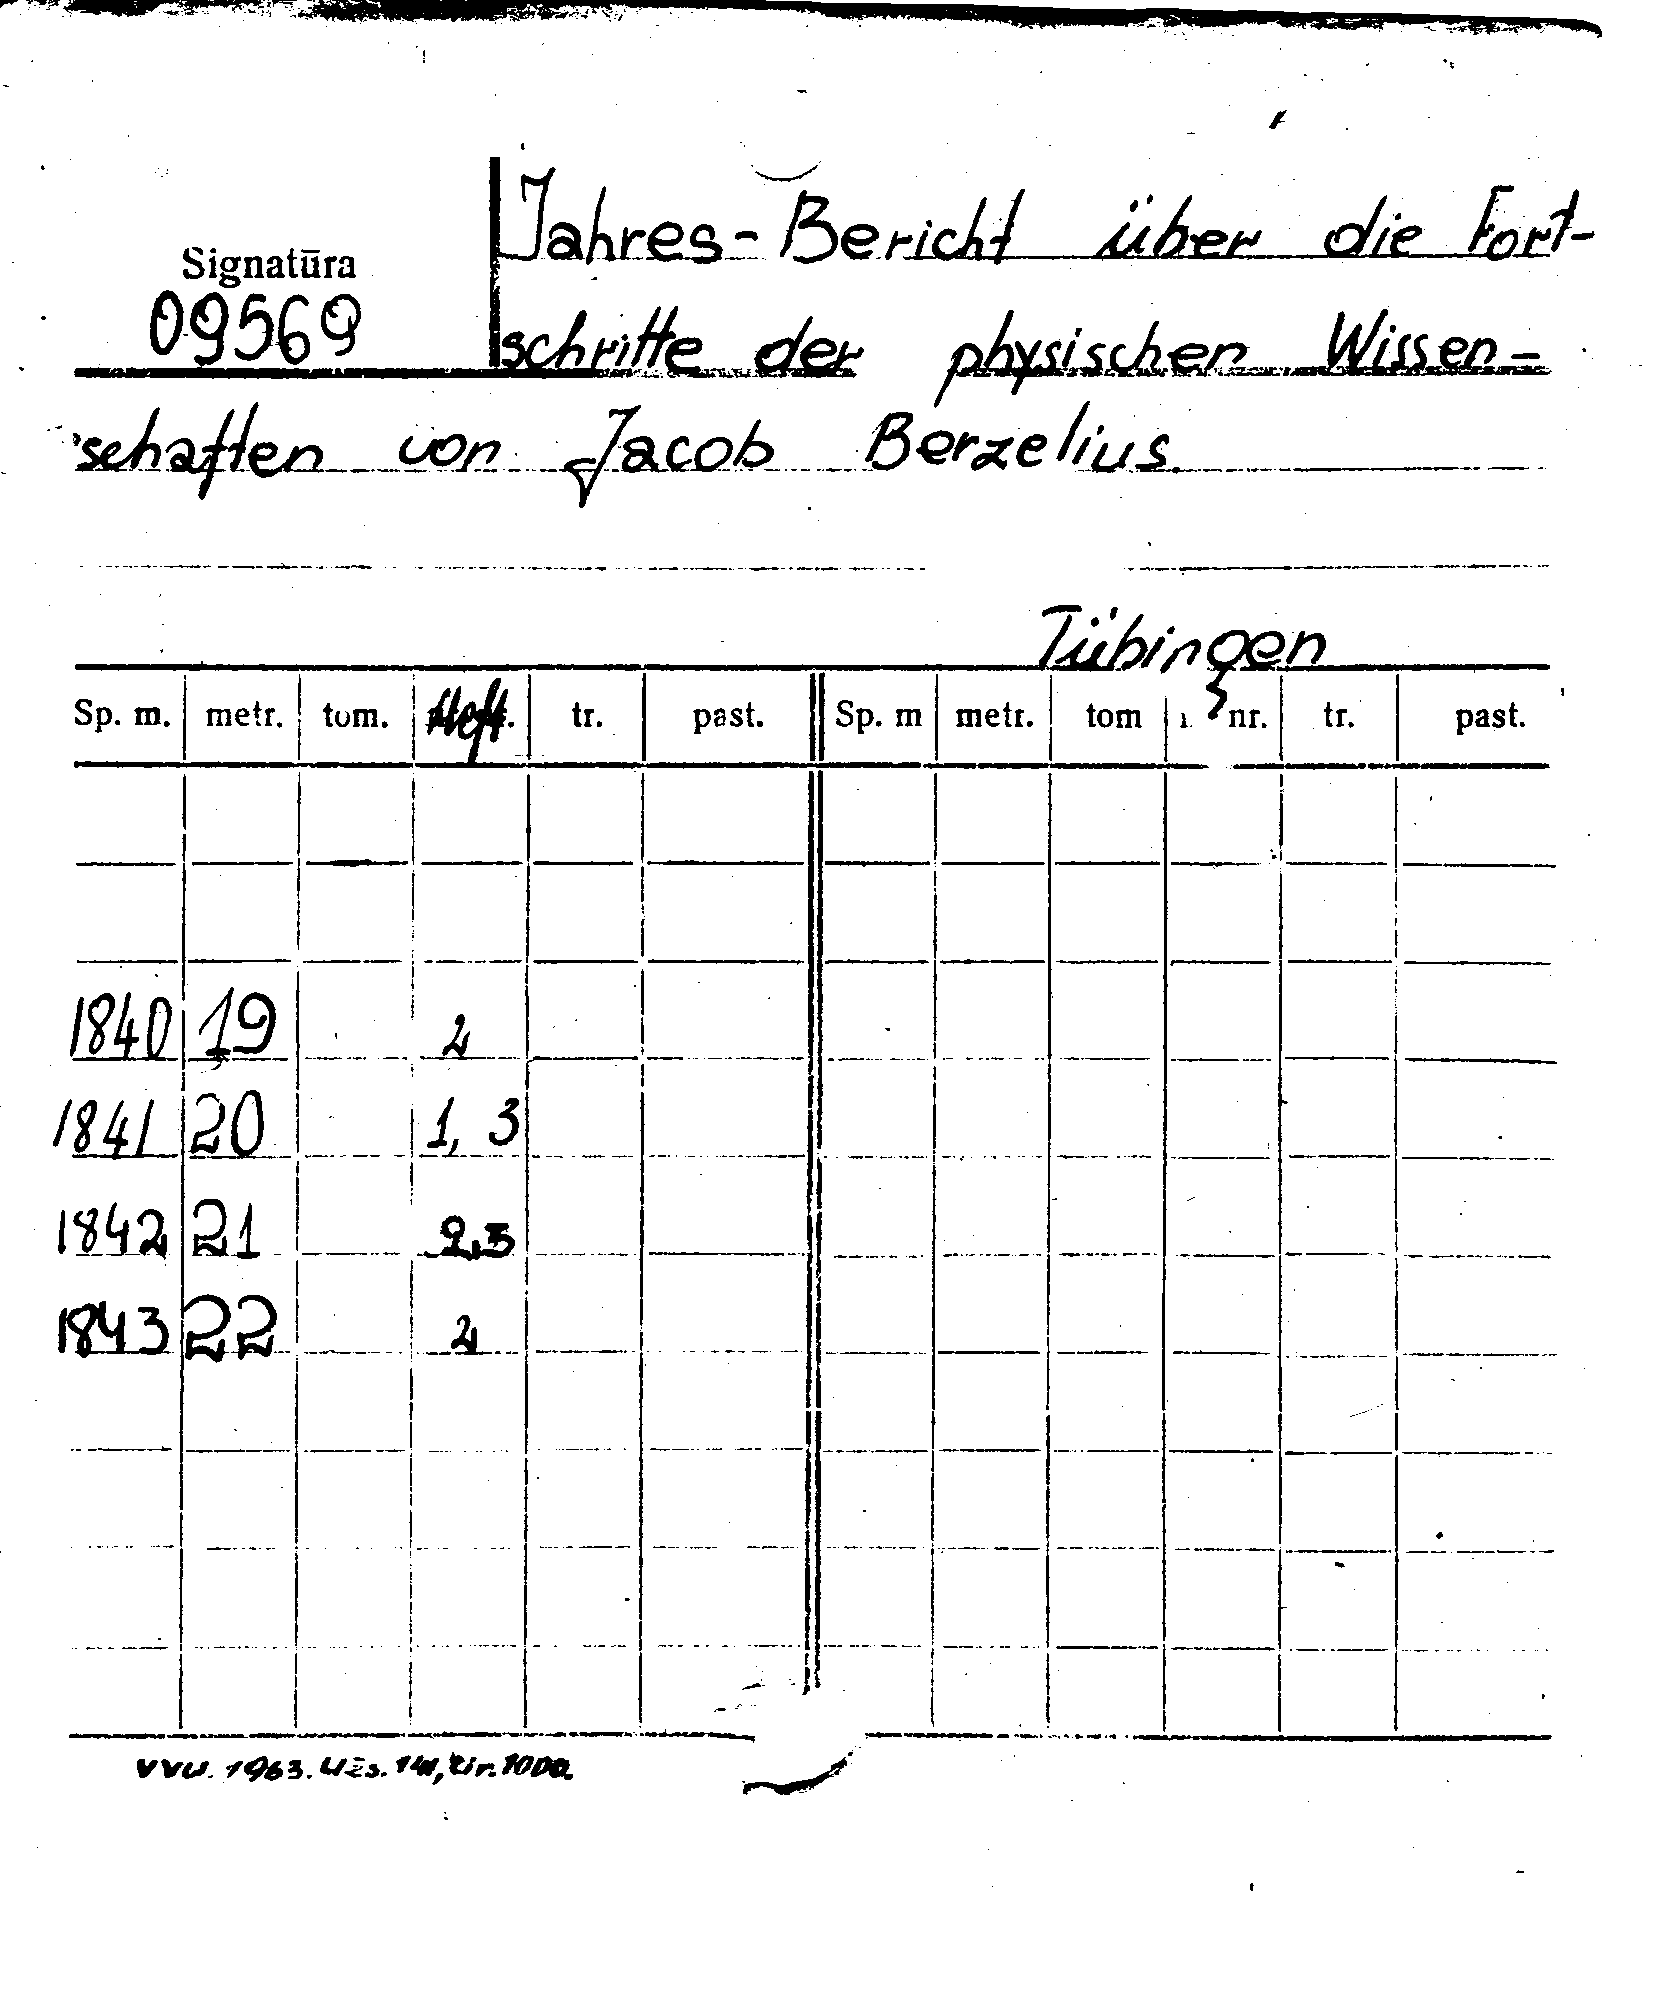 Jahres-Bericht über die Fort-
Signatūra
09569
schritte der physischen Wissen-
schaften von Jacob Berzelius.
Tübingen
Sp. m. metr. tom. Heft. tr. past. Sp. m metr. tom nr. tr. past.
1840 19 2
1841 20 1, 3
1842 21 2,3
1843 22 2
VVU. 1963. Užs. 141, tir. 1000.